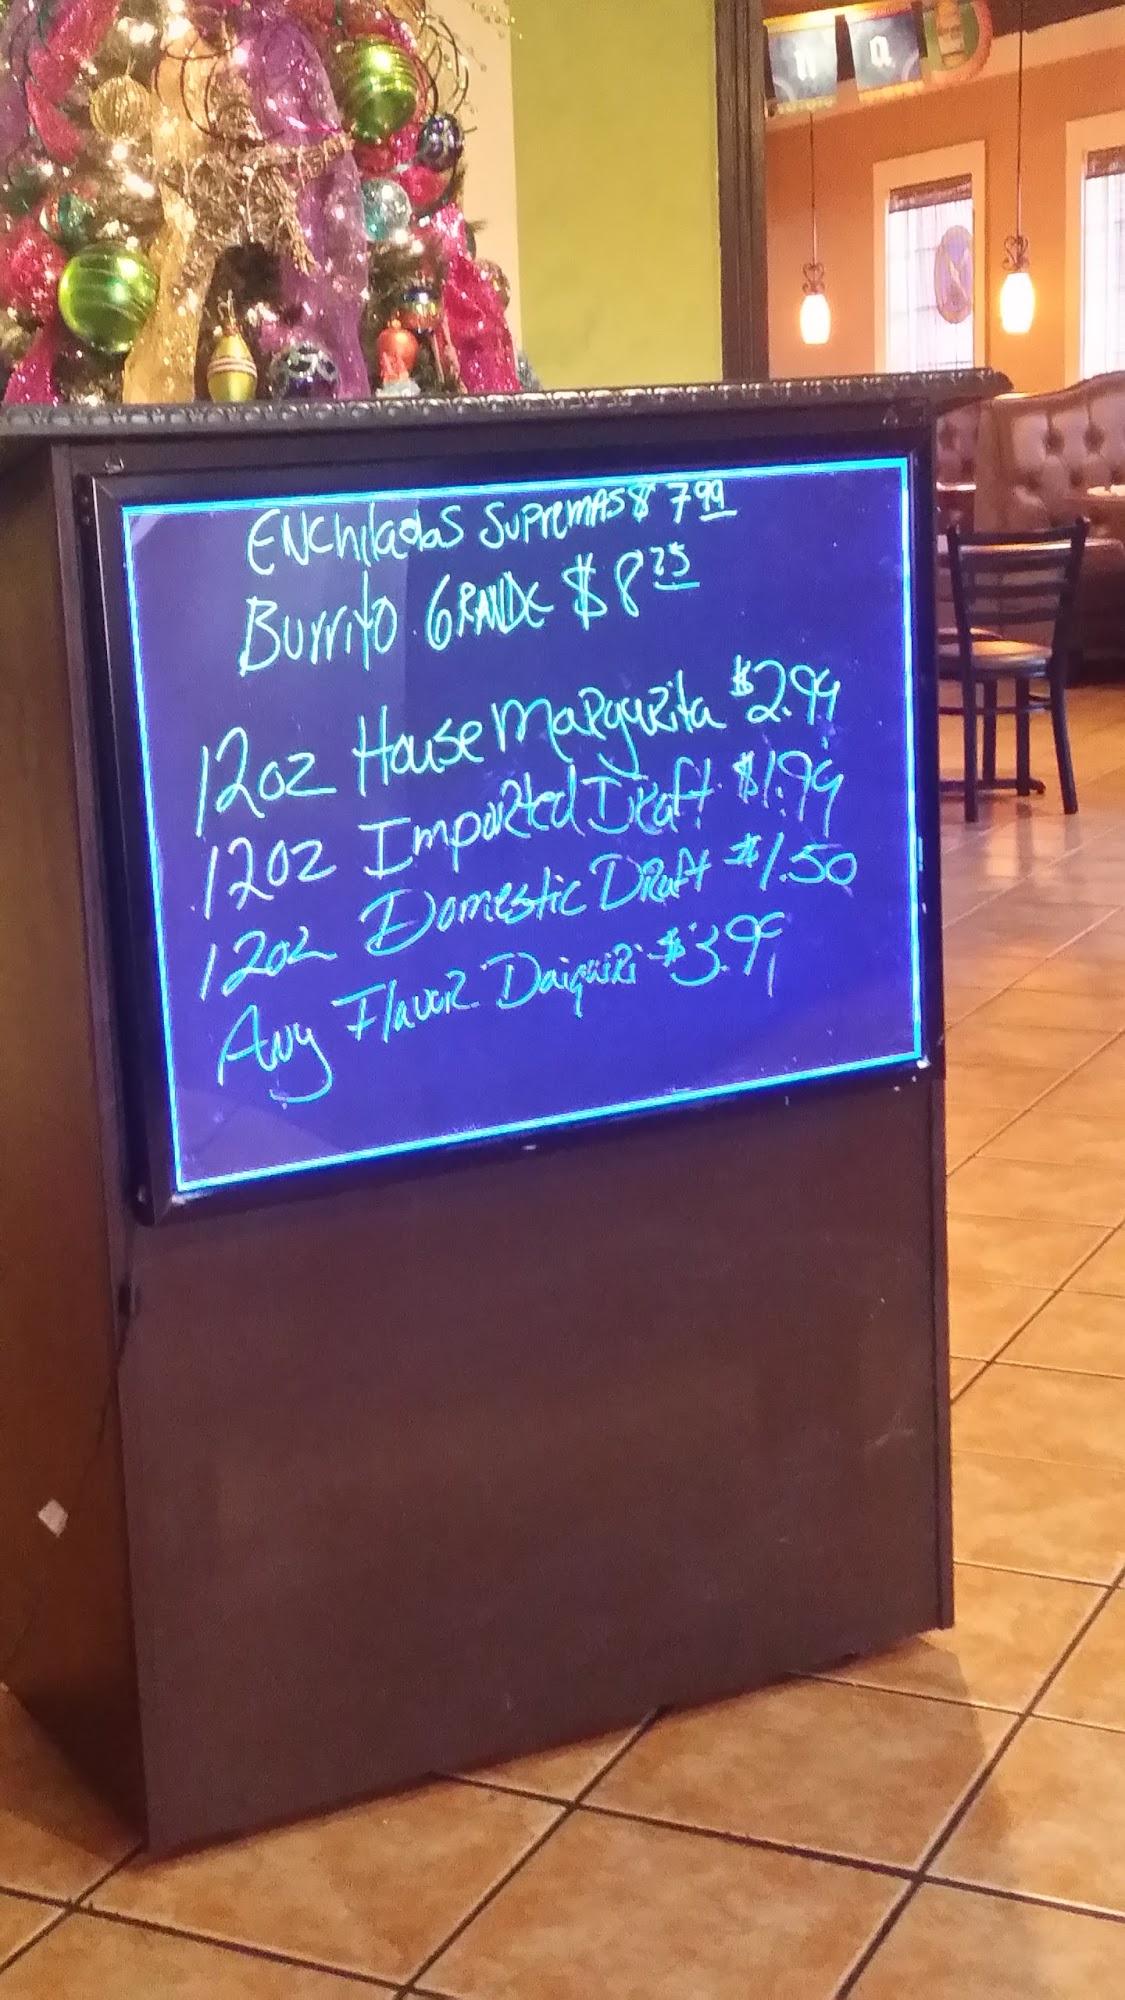 Enchiladas Supremas $ 7 99
Burrito Grande $ 8 25
12oz House Margarita $2.99
12oz Imported Draft $1.99
12oz Domestic Draft $1.50
Any Flavor Daiquiri $3.99